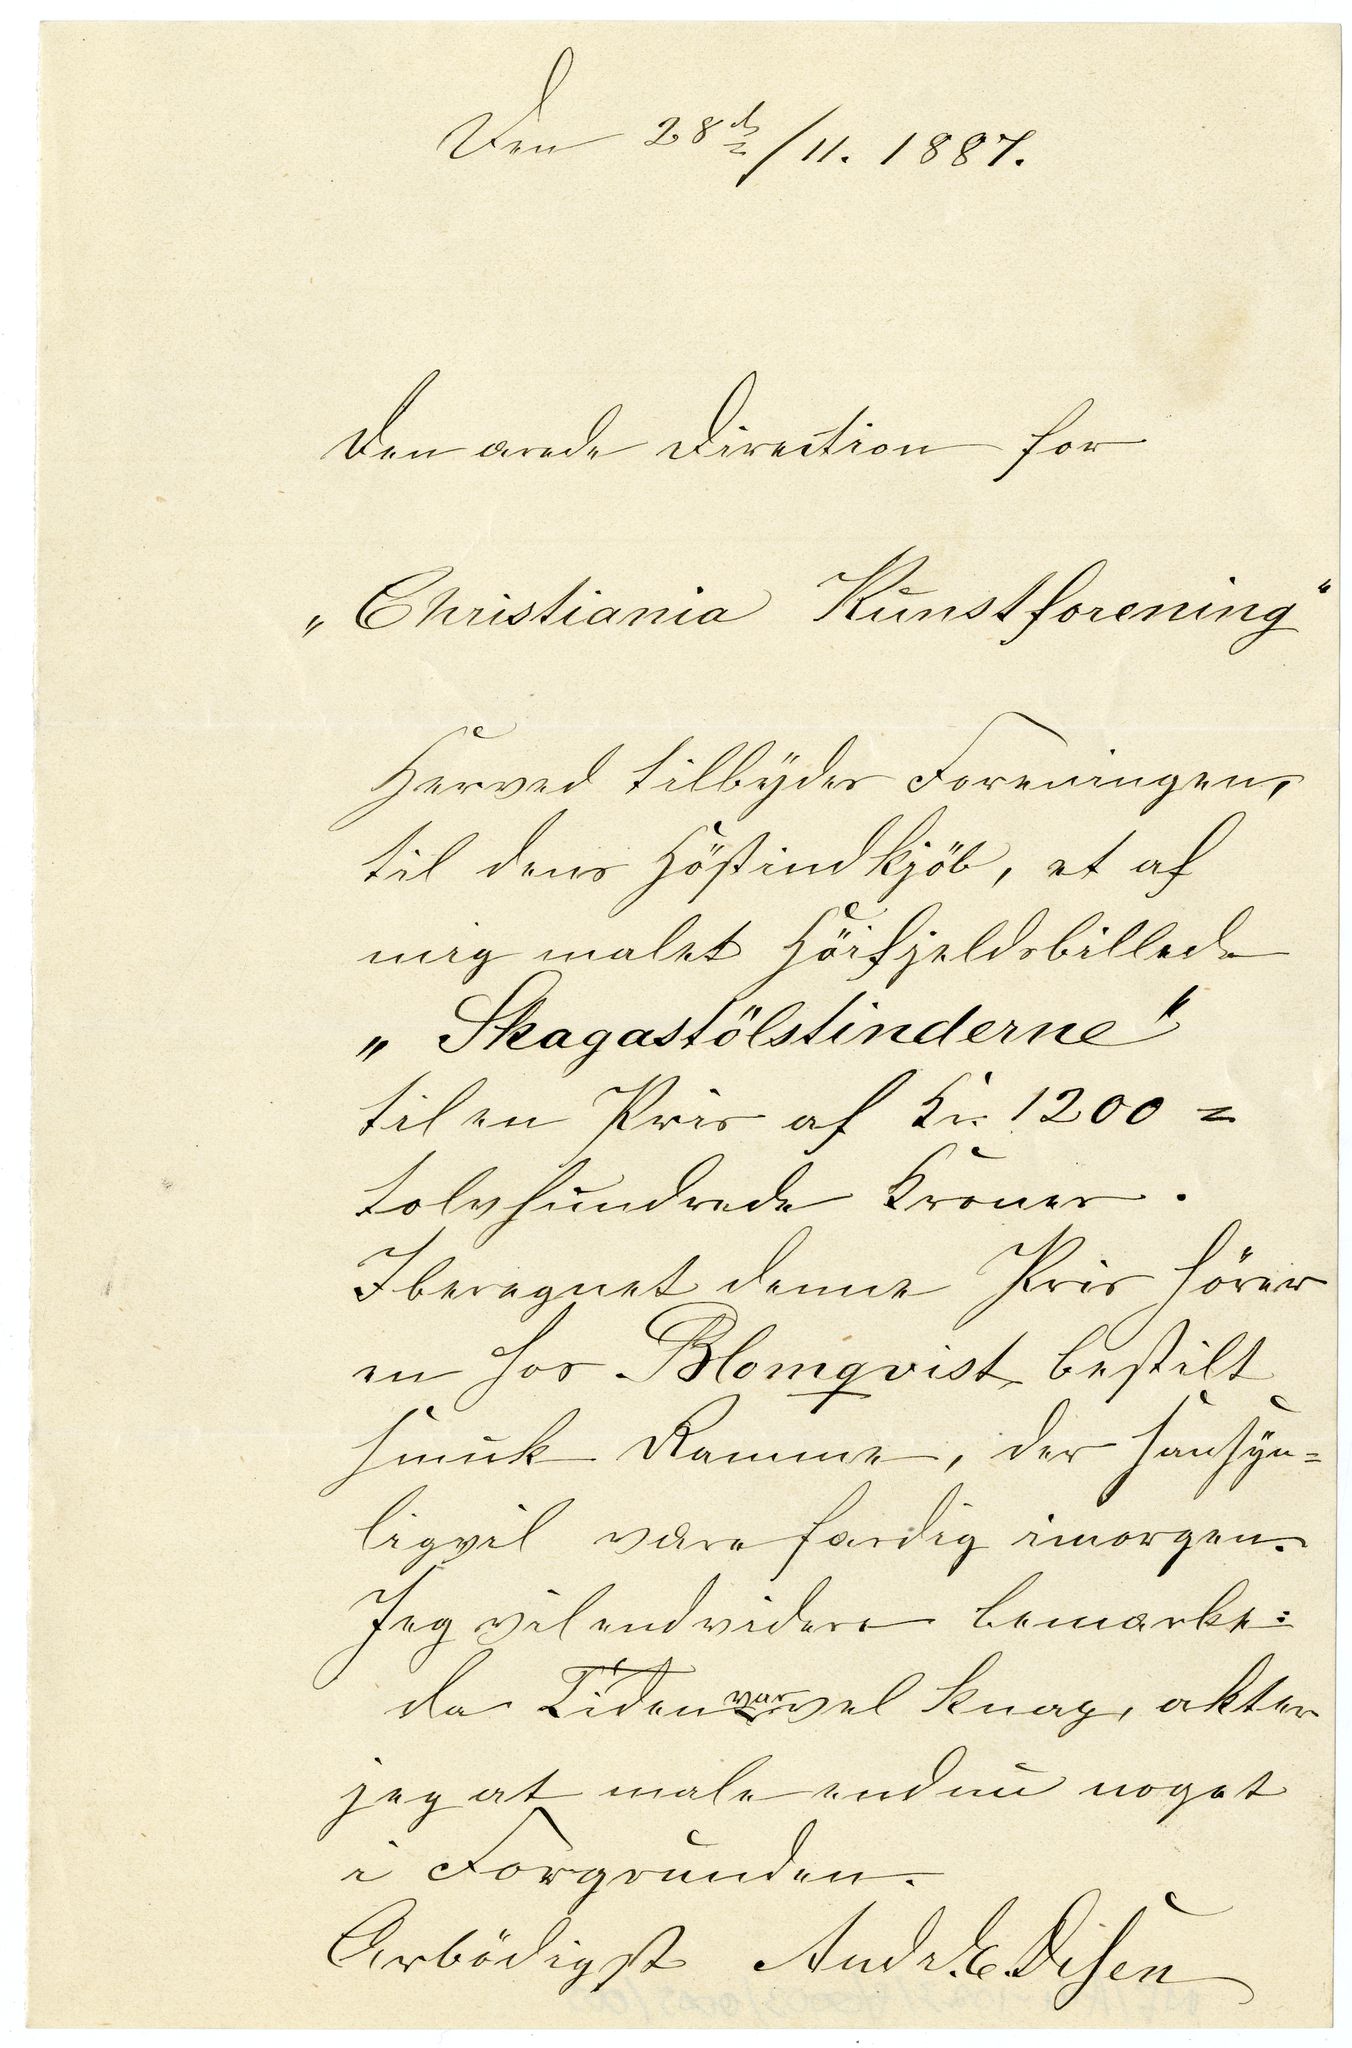 Den 28de/11. 1887.
Den ærede Direction for
„Christiania Kunstforening“
Herved tilbydes Foreningen,
til dens Höstindkjöb, et af
mig malet Höifjeldsbillede
„Skagastölstinderne“
til en Pris af Kr. 1200 =
tolvhundrede Kroner.
Iberegnet denne Pris hörer
en hos Blomqvist bestilt
smuk Ramme, der sansyn=
ligvil være færdig imorgen.
Jeg vil endvidere bemærke:
da Tiden var vel knap, akter
jeg at male endnu noget
i Forgrunden.
Ærbödigst Andr. E. Disen